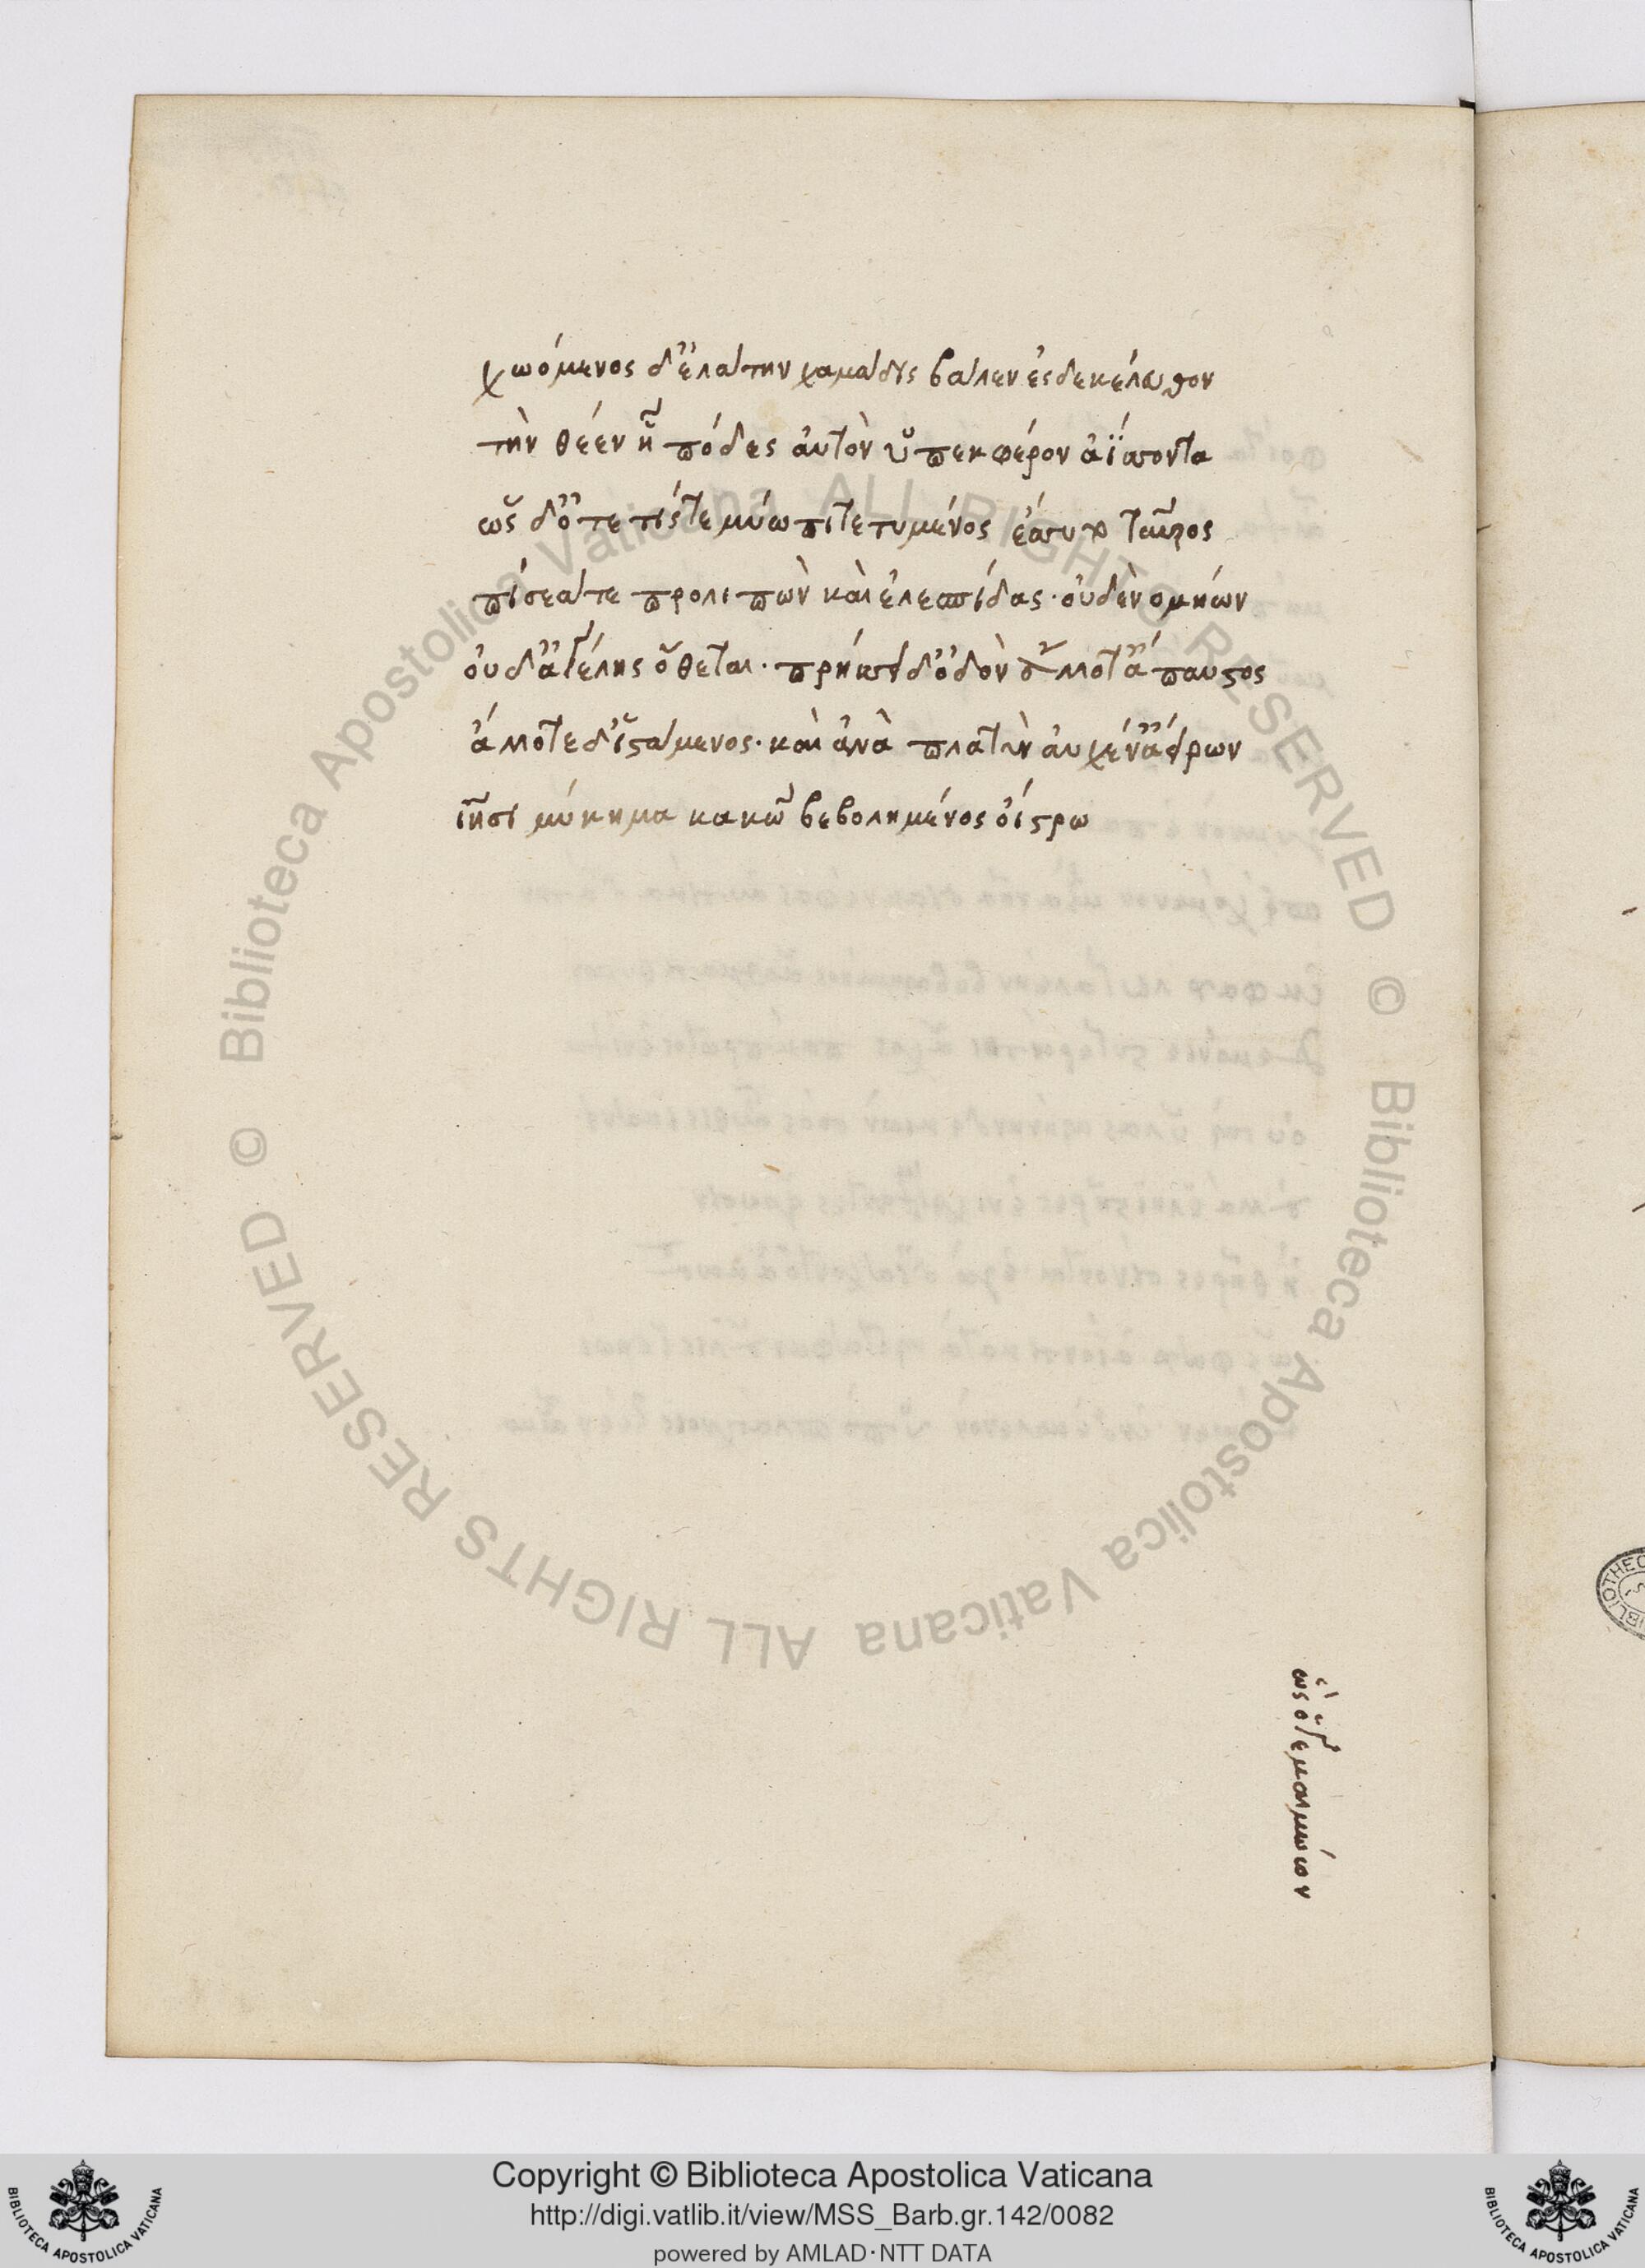 χωόμενος δ' ἐλάτην χαμάδις βάλεν ἐς δὲ κέλευθον
τὴν θέεν ᾗ πόδες αὐτὸν ὑπέκφερον ἀΐσσοντα
ὡς δ' ὅτε τίς τε μύωπι τετυμένος ἔσσυτο ταῦρος
πίσεά τε προλιπὼν καὶ ἑλεσπίδας· οὐδὲ νομήων
οὐδ' ἀγέλης ὄθεται· πρήσσει δ' ὁδὸν ἄλλοτ' ἄπαυστος
ἄλλοτε δ' ἱστάμενος· καὶ ἀνὰ πλατὺν αὐχέν' ἀείρων
ἵησι μύκημα κακῷ βεβολημένος οἴστρῳ
ὡς ὅγε μαιμώων
Copyright © Biblioteca Apostolica Vaticana
http://digi.vatlib.it/view/MSS_Barb.gr.142/0082
powered by AMLAD·NTT DATA
BIBLIOTECA APOSTOLICA VATICANA
BIBLIOTECA APOSTOLICA VATICANA
© Biblioteca Apostolica Vaticana ALL RIGHTS RESERVED
© Biblioteca Apostolica Vaticana ALL RIGHTS RESERVED